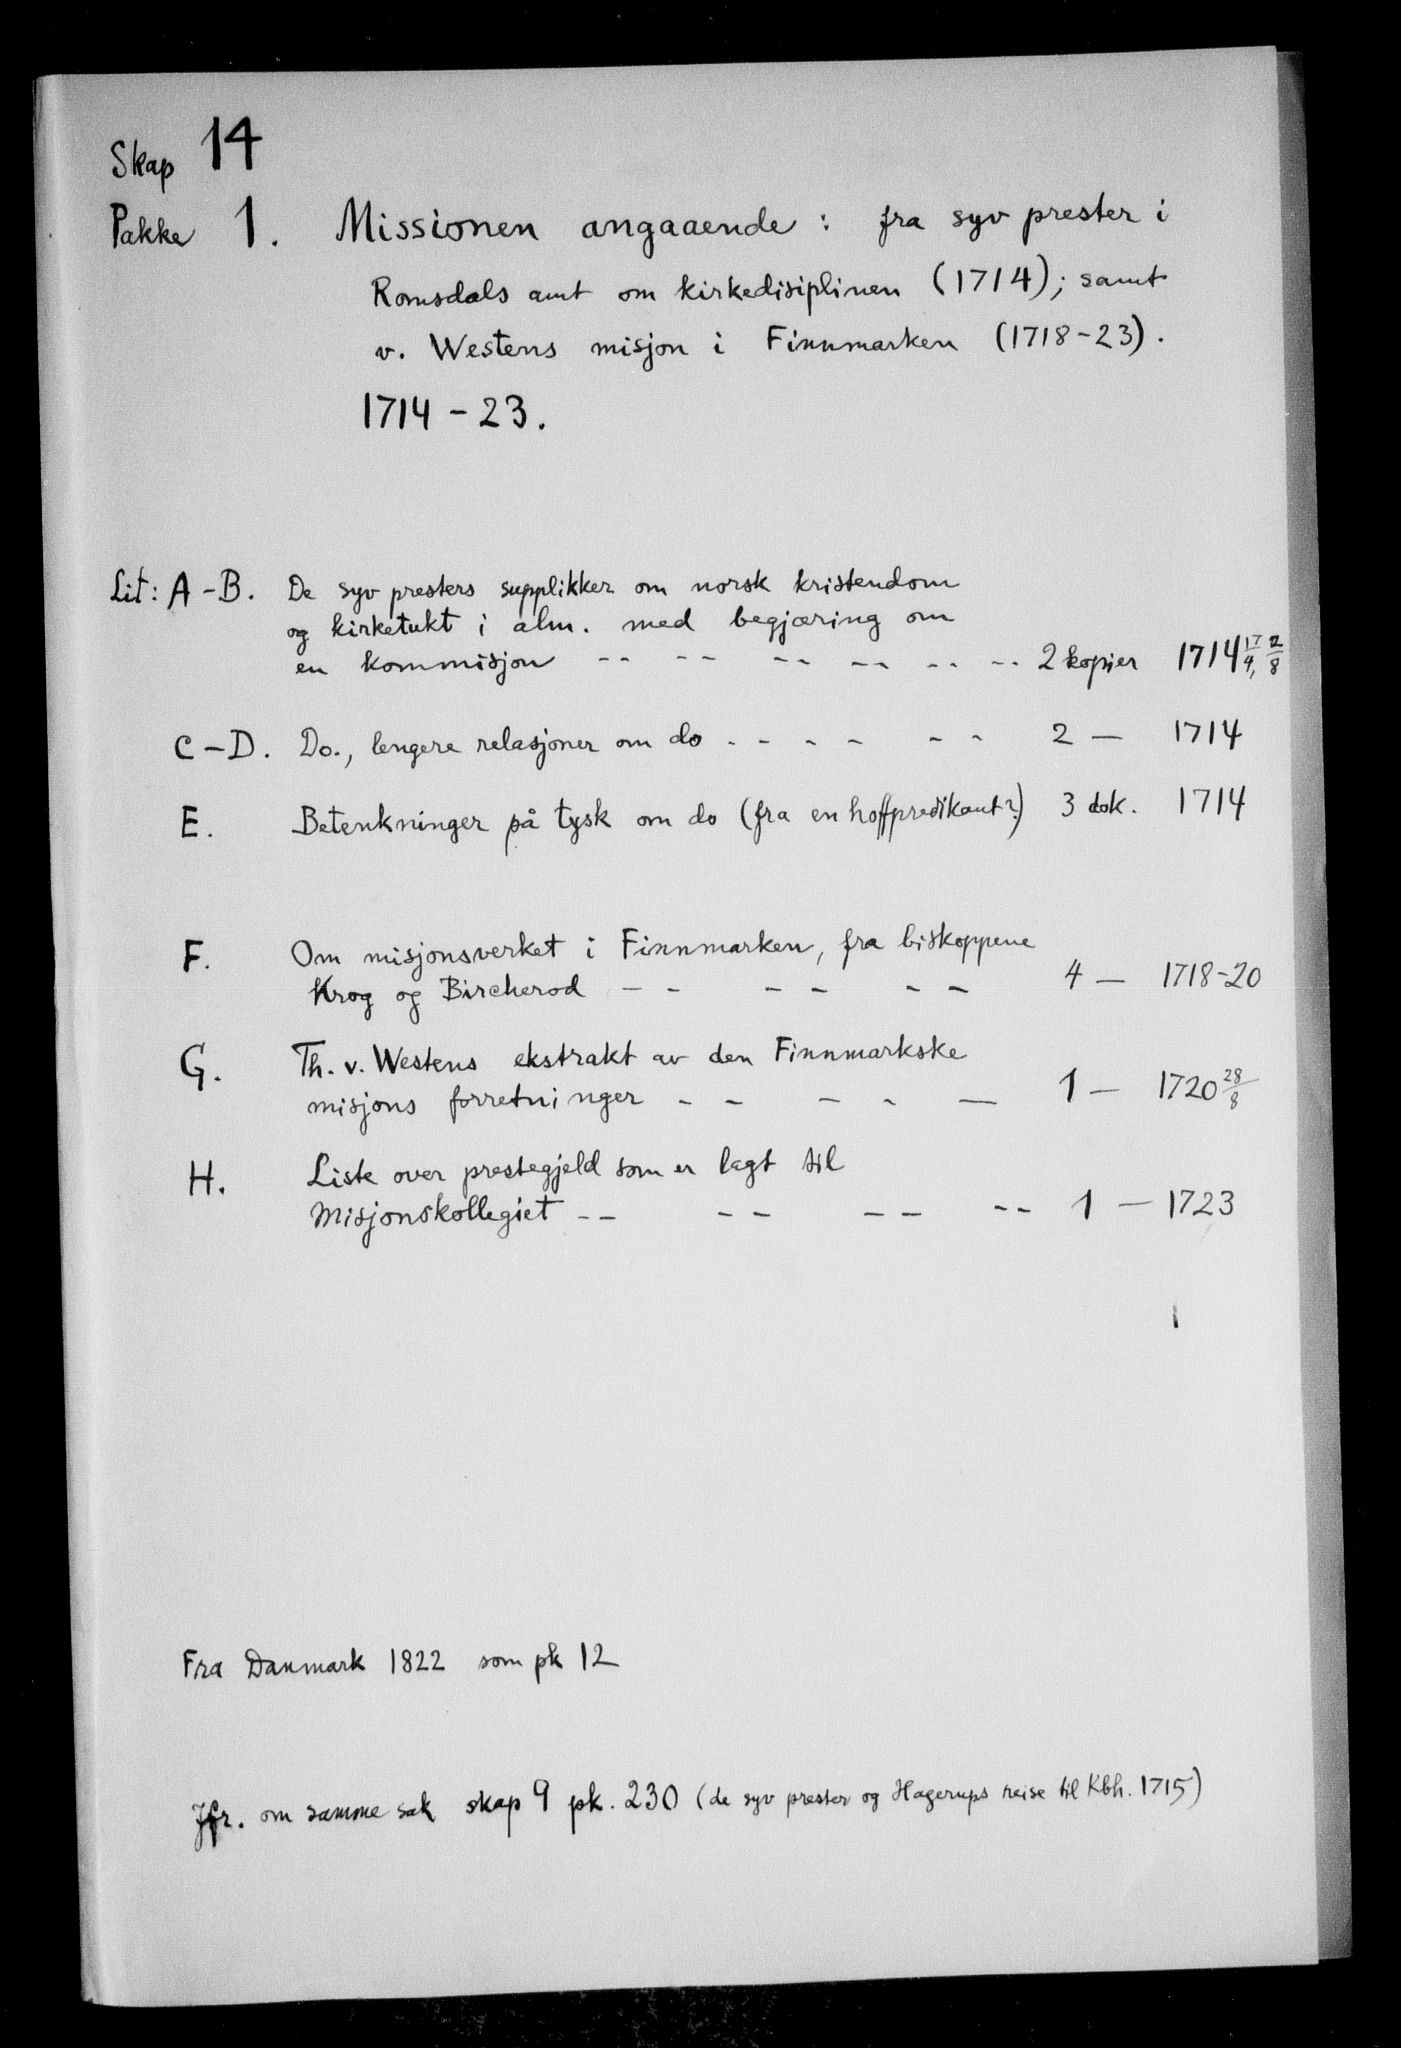 Skap 14
Pakke 1. Missionen angaaende: fra syv prester i
Romsdals amt om kirkedisiplinen (1714); samt
v. Westens misjon i Finnmarken (1718-23).
1714-23.
Lit: A-B. De syv presters supplikker om norsk kristendom
og kirketukt i alm. med begjæring om
en kommisjon -- -- -- -- -- -- 2 kopier 1714 17/4, 2/8
C-D. Do., lengere relasjoner om do - - - - - - 2 — 1714
E. Betenkninger på tysk om do (fra en hoffpredikant?) 3 dok. 1714
F. Om misjonsverket i Finnmarken, fra biskoppene
Krog og Bircherod -- -- -- 4 — 1718-20
G. Th. v. Westens ekstrakt av den Finnmarkske
misjons forretninger - - - - — 1 — 1720 28/8
H. Liste over prestegjeld som er lagt til
Misjonskollegiet -- -- -- -- 1 — 1723
Fra Danmark 1822 som pk 12
Jfr. om samme sak skap 9 pk. 230 (de syv prester og Hagerups reise til Kbh. 1715)